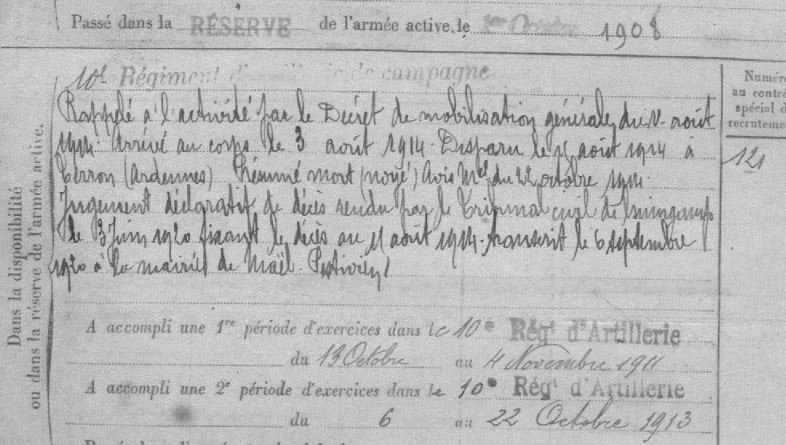 Passé dans la RÉSERVE de l'armée active, le 1er Octobre 1908
10e Régiment d'artillerie de campagne
Numéro
au contrô
spécial d
recruteme
Rappelé à l'activité par le Décret de mobilisation générale du 1er août
1914. Arrivé au corps le 3 août 1914. Disparu le 11 août 1914 à
Terron (Ardennes) Présumé mort (noyé) Avis Mel du 22 octobre 1914.
121
Jugement déclaratif de décès rendu par le Tribunal civil de Guingamp
le 3 juin 1920 fixant le décès au 11 août 1914. transcrit le 6 septembre
1920 à la mairie de Maël-Pestivien
Dans la disponibilité
ou dans la réserve de l'armée active.
A accompli une 1re période d'exercices dans le 10e Régt d'Artillerie
du 13 Octobre au 4 Novembre 1911
A accompli une 2e période d'exercices dans le 10e Régt d'Artillerie
du 6 au 22 Octobre 1913